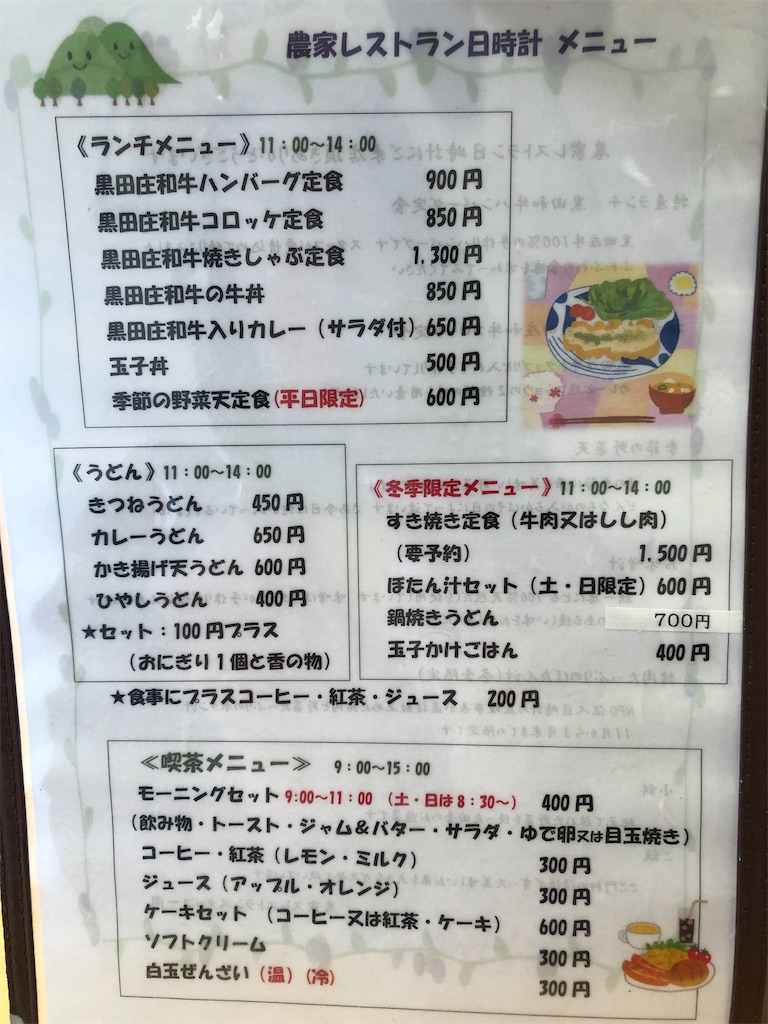 農家レストラン日時計 メニュー
《ランチメニュー》11：00～14：00
黒田庄和牛ハンバーグ定食 900円
黒田庄和牛コロッケ定食 850円
黒田庄和牛焼きしゃぶ定食 1,300円
黒田庄和牛の牛丼 850円
黒田庄和牛入りカレー（サラダ付）650円
玉子丼 500円
季節の野菜天定食(平日限定) 600円
《うどん》11：00～14：00
きつねうどん 450円
カレーうどん 650円
かき揚げ天うどん 600円
ひやしうどん 400円
★セット：100円プラス
（おにぎり1個と香の物）
《冬季限定メニュー》11：00～14：00
すき焼き定食（牛肉又はしし肉）
（要予約） 1,500円
ぼたん汁セット（土・日限定）600円
鍋焼きうどん 700円
玉子かけごはん 400円
★食事にプラスコーヒー・紅茶・ジュース 200円
≪喫茶メニュー≫ 9：00～15：00
モーニングセット 9:00～11:00 （土・日は8：30～） 400円
（飲み物・トースト・ジャム＆バター・サラダ・ゆで卵又は目玉焼き）
コーヒー・紅茶（レモン・ミルク） 300円
ジュース（アップル・オレンジ） 300円
ケーキセット （コーヒー又は紅茶・ケーキ） 600円
ソフトクリーム 300円
白玉ぜんざい（温）（冷） 300円